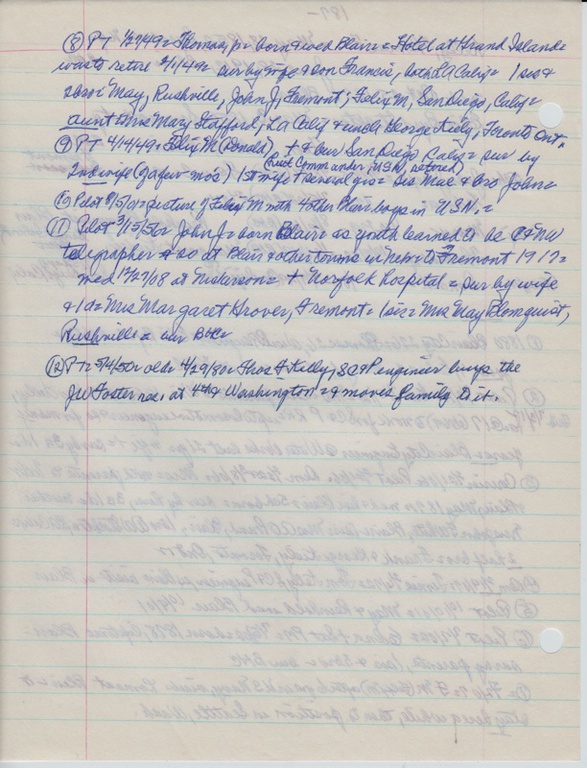 187-
⑧ PT 1/27/49= Thomas, Jr= born & wed Blair= Hotel at Grand Island=
was to retire 2/1/49= sur by wife & son Francis, both LaCalif= 1 sis &
2 bro= May, Rushville, John J, Fremont; Felix M, San Diego, Calif=
aunt Mrs Mary Stafford, La Calif & uncle George Kelly, Toronto Ont.
⑨ PT 4/14/49= Felix M (Donald) + & bur San Diego Calif= sur by
2nd wife (of a few mos) 1st wife + several yrs= sis Mae & bro John=
(Lieut Commander, USN, retired)
⑩ Pilot picture of Felix M with 4 other Blair boys in U.S.N.=
⑪ Pilot 3/15/50= John J= born Blair= as youth learned to be C&NW
telegrapher & so at Blair & other towns in Nebr= to Fremont 1917=
med 12/27/08 at Nickerson= + Norfolk hospital= sur by wife
& 1 d= Mrs Margaret Hrover, Fremont= 1 sis= Mrs May Blomquist,
Rushville= bur
⑫ PT= 5/4/50= olds 4/29/80= Thos F Kelly, engineer buys the
JW Foster res, at 4th & Washington= & moves family to it.